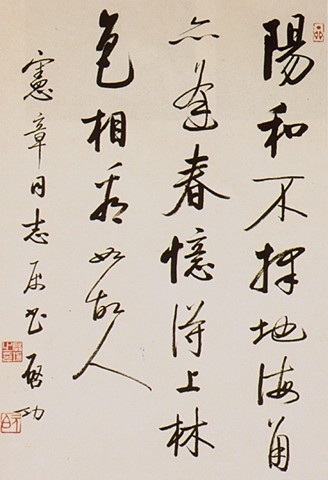 陽和不擇地海角
亦逢春憶得上林
色相看如故人
憲章同志属书 啓功